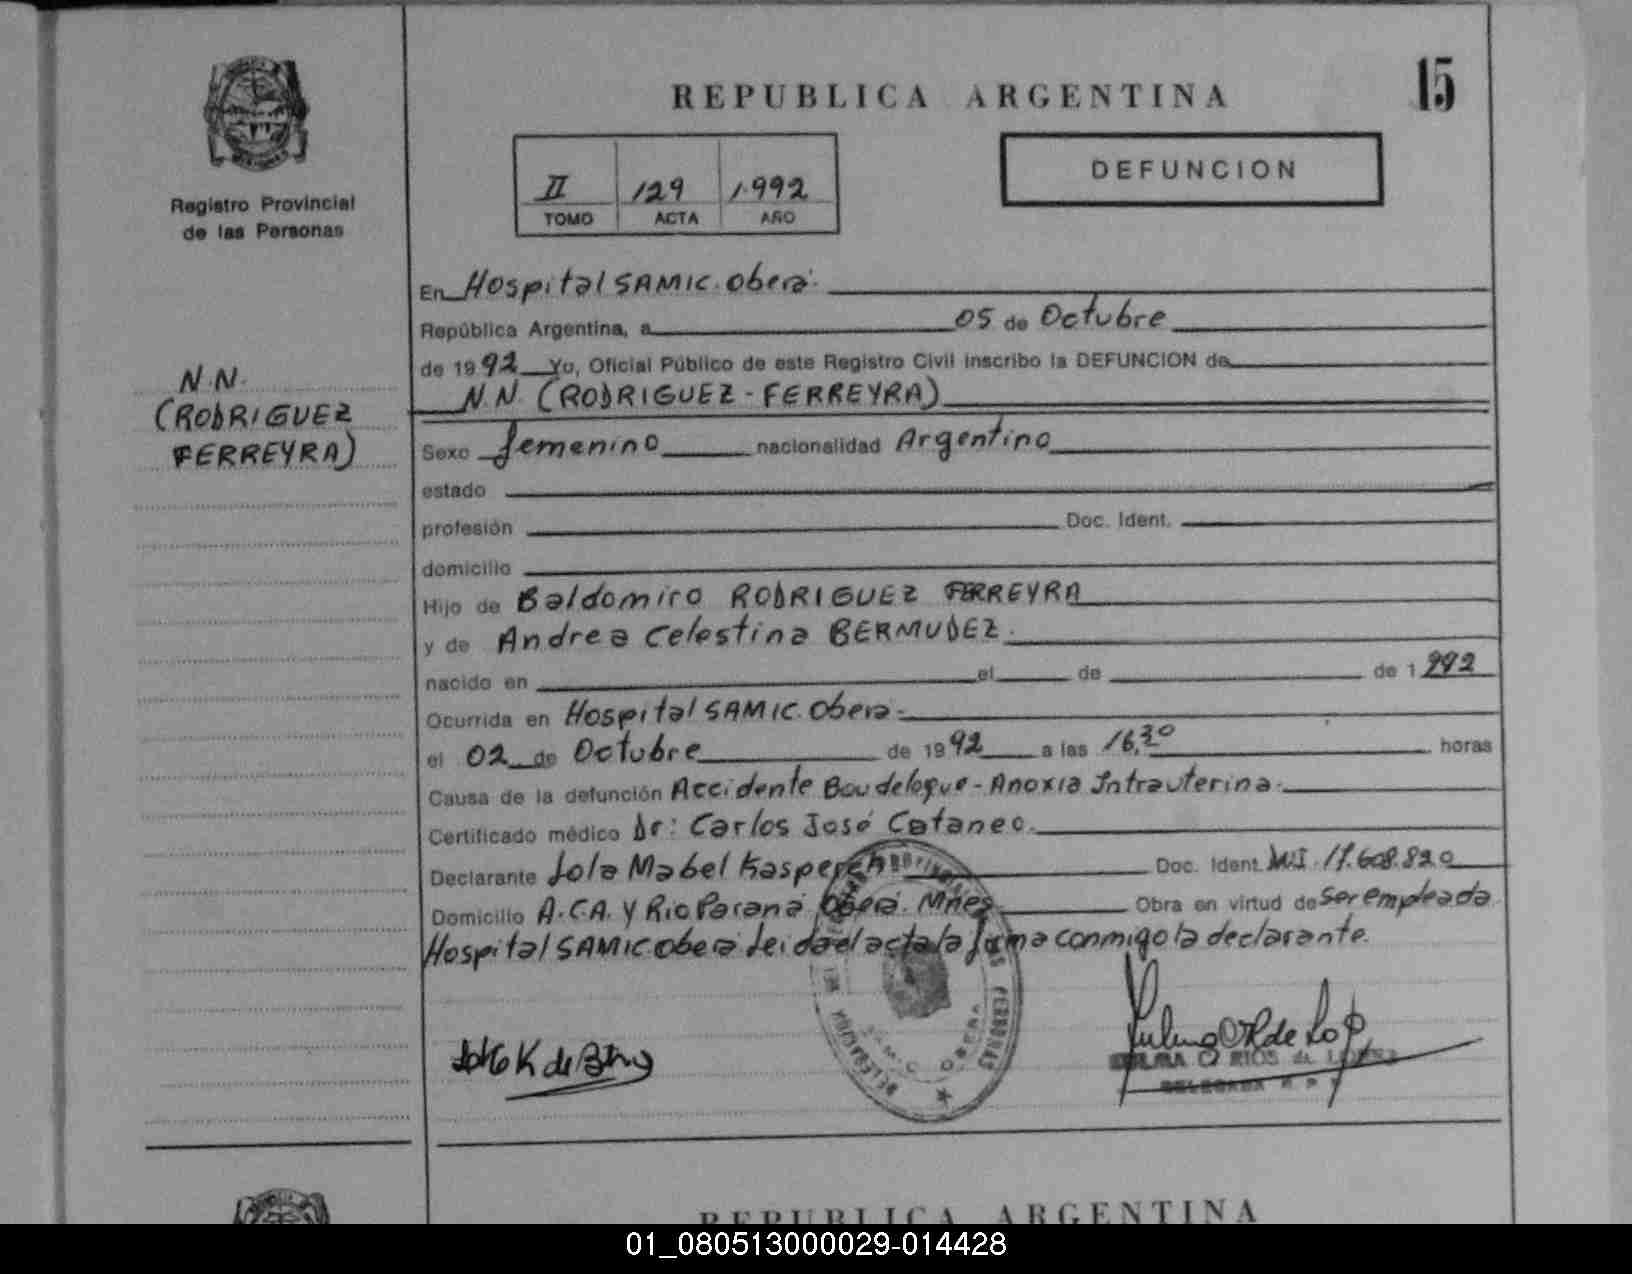 REPUBLICA ARGENTINA
15
Registro Provincial
de las Personas
II 129 1.992
TOMO ACTA AÑO
DEFUNCION
N.N.
(RODRIGUEZ
FERREYRA)
En Hospital SAMIC. Oberá.
República Argentina, a 05 de Octubre
de 1992 Yo, Oficial Público de este Registro Civil inscribo la DEFUNCION de
N.N. (RODRIGUEZ - FERREYRA)
Sexo femenino nacionalidad Argentino
estado
profesión Doc. Ident.
domicilio
Hijo de Baldomiro RODRIGUEZ FERREYRA
y de Andrea Celestina BERMUDEZ.
nacido en el de de 1992
Ocurrida en Hospital SAMIC. Oberá.
el 02 de Octubre de 1992 a las 16,30 horas
Causa de la defunción Accidente - Anoxia Intrauterina.
Certificado médico Dr: Carlos José Cataneo.
Declarante Lola Mabel Doc. Ident. 17.608.820
Domicilio A.C.A. y Rio Paraná Oberá. Mnes Obra en virtud de Ser empleada
Hospital SAMIC Oberá Leida el acta la firma conmigo la declarante.
DELEGADA R P P
REPUBLICA ARGENTINA
01_080513000029-014428